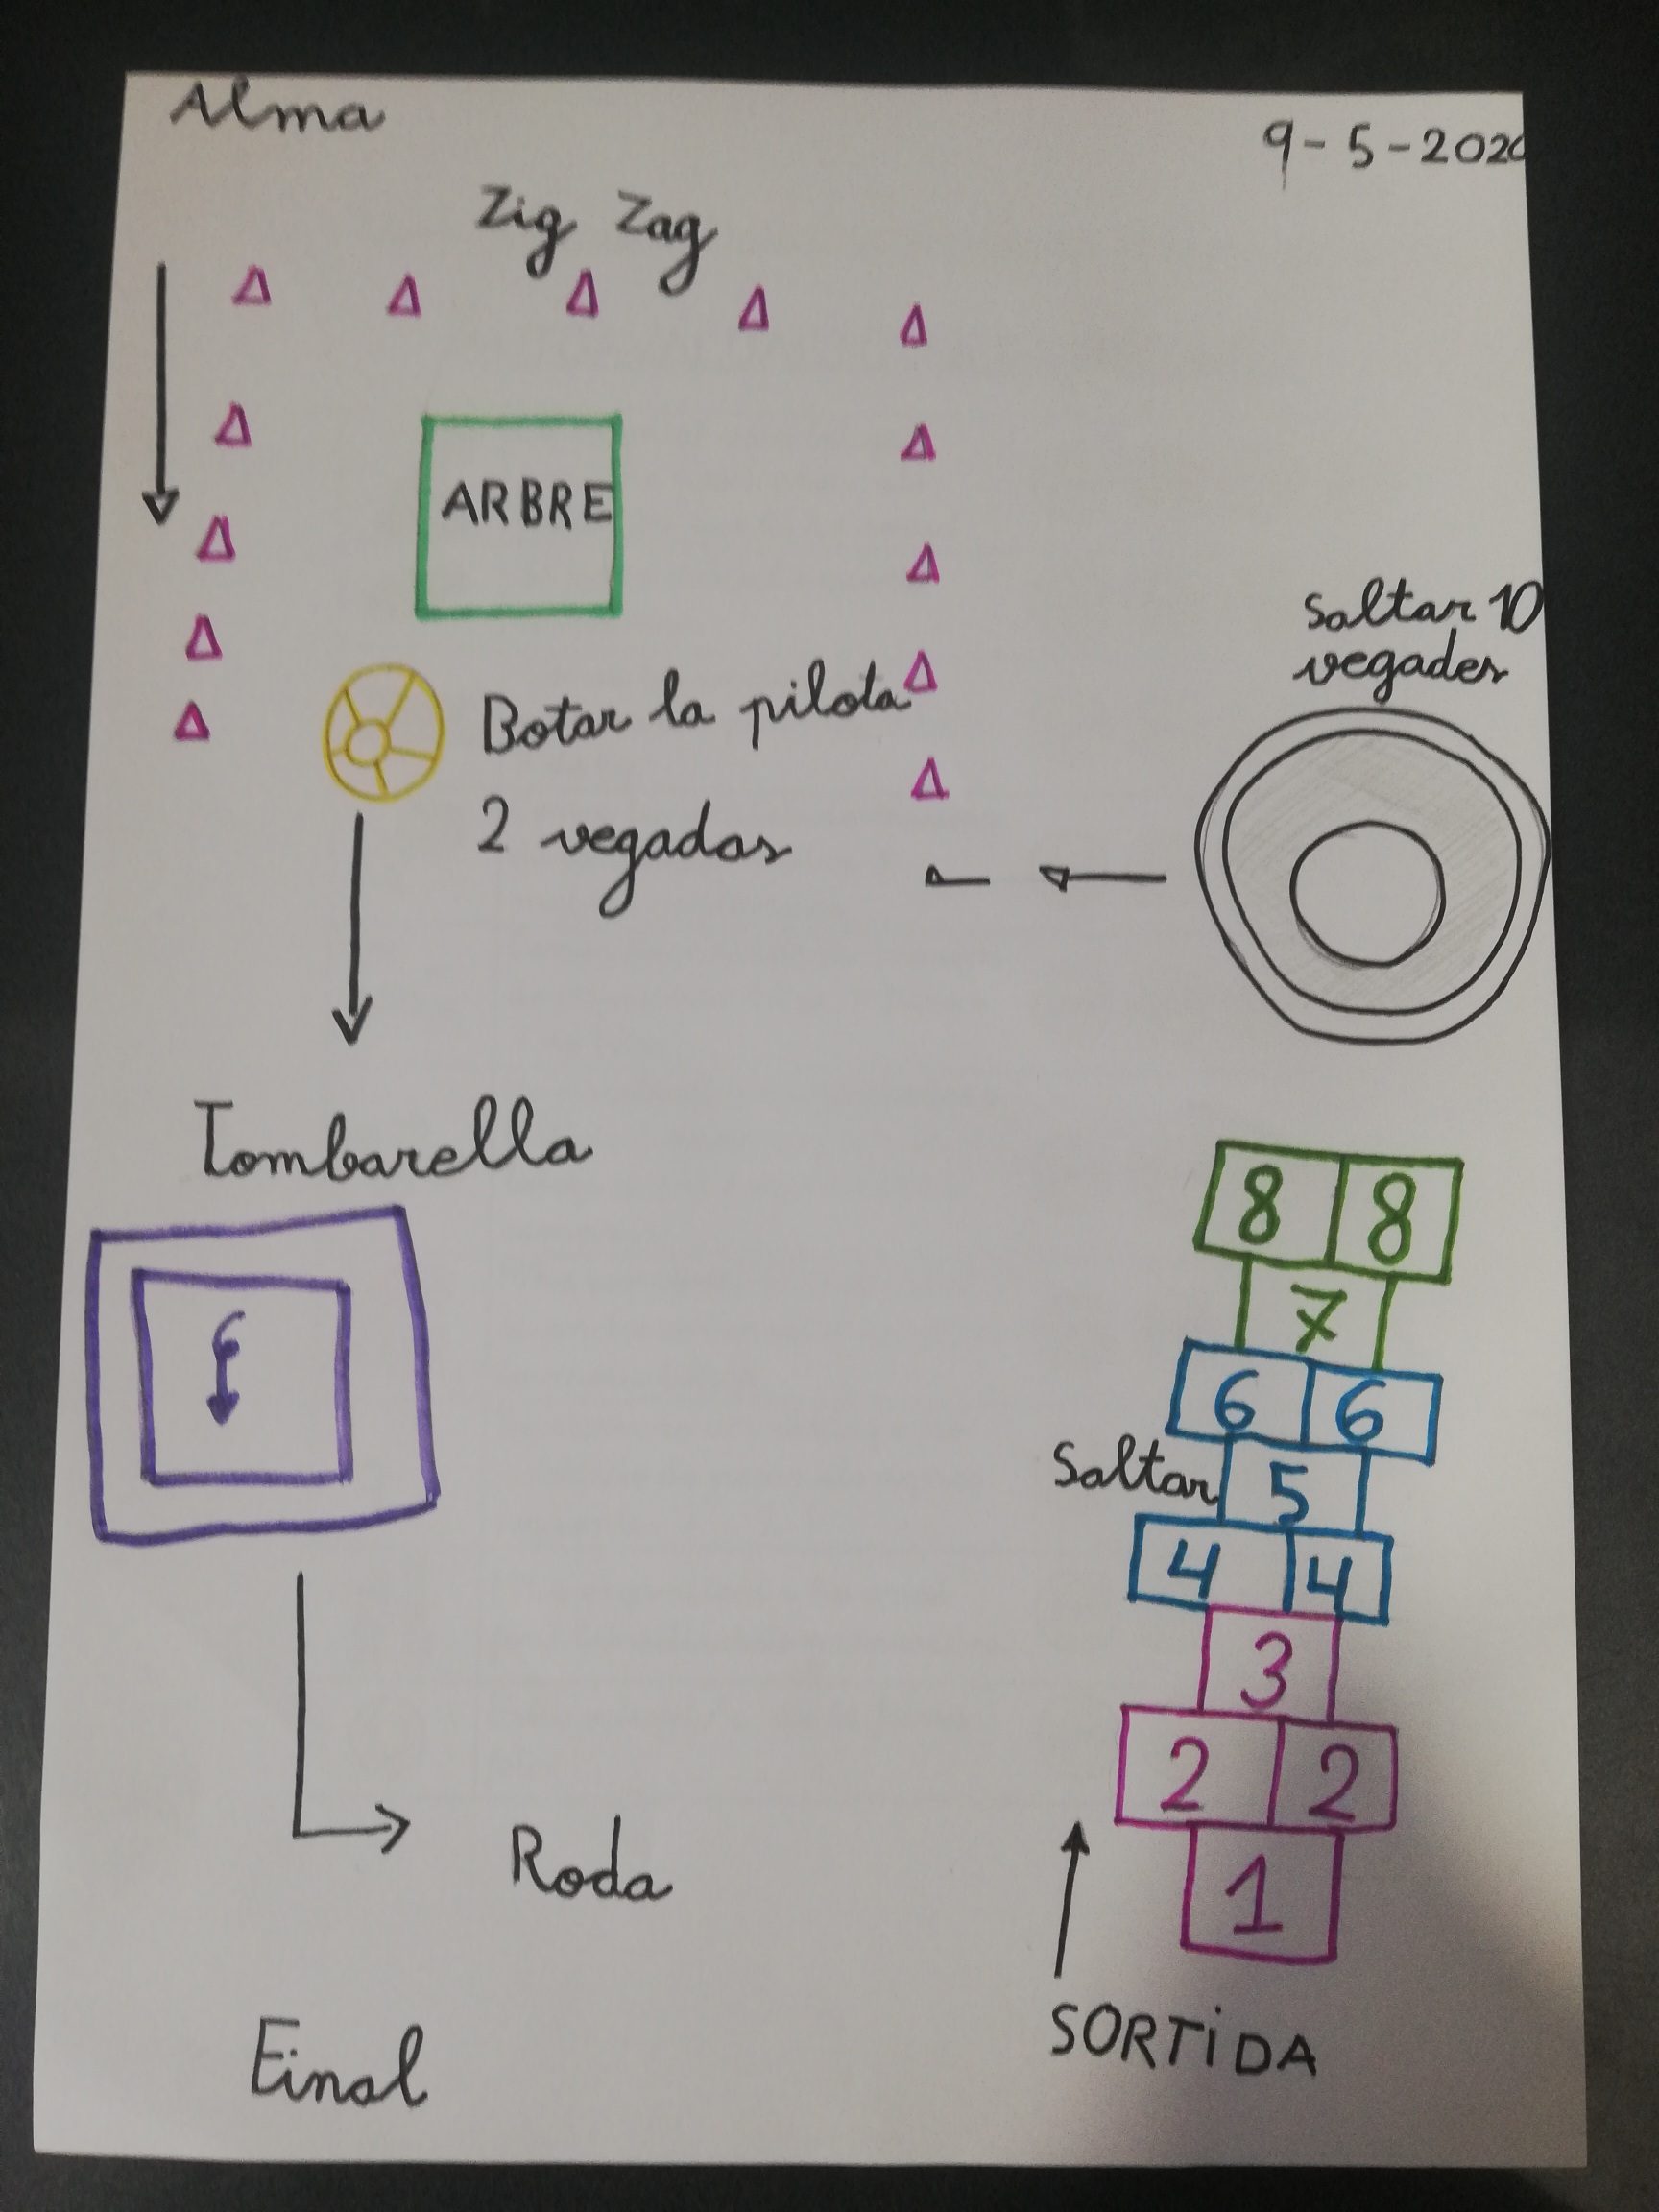 Alma
9-5-2020
Zig Zag
ARBRE
Saltar 10
vegades
Botar la pilota
2 vegadas
Tombarella
8 8
7
6 6
Saltar
5
4 4
3
2 2
1
Roda
SORTiDA
Final